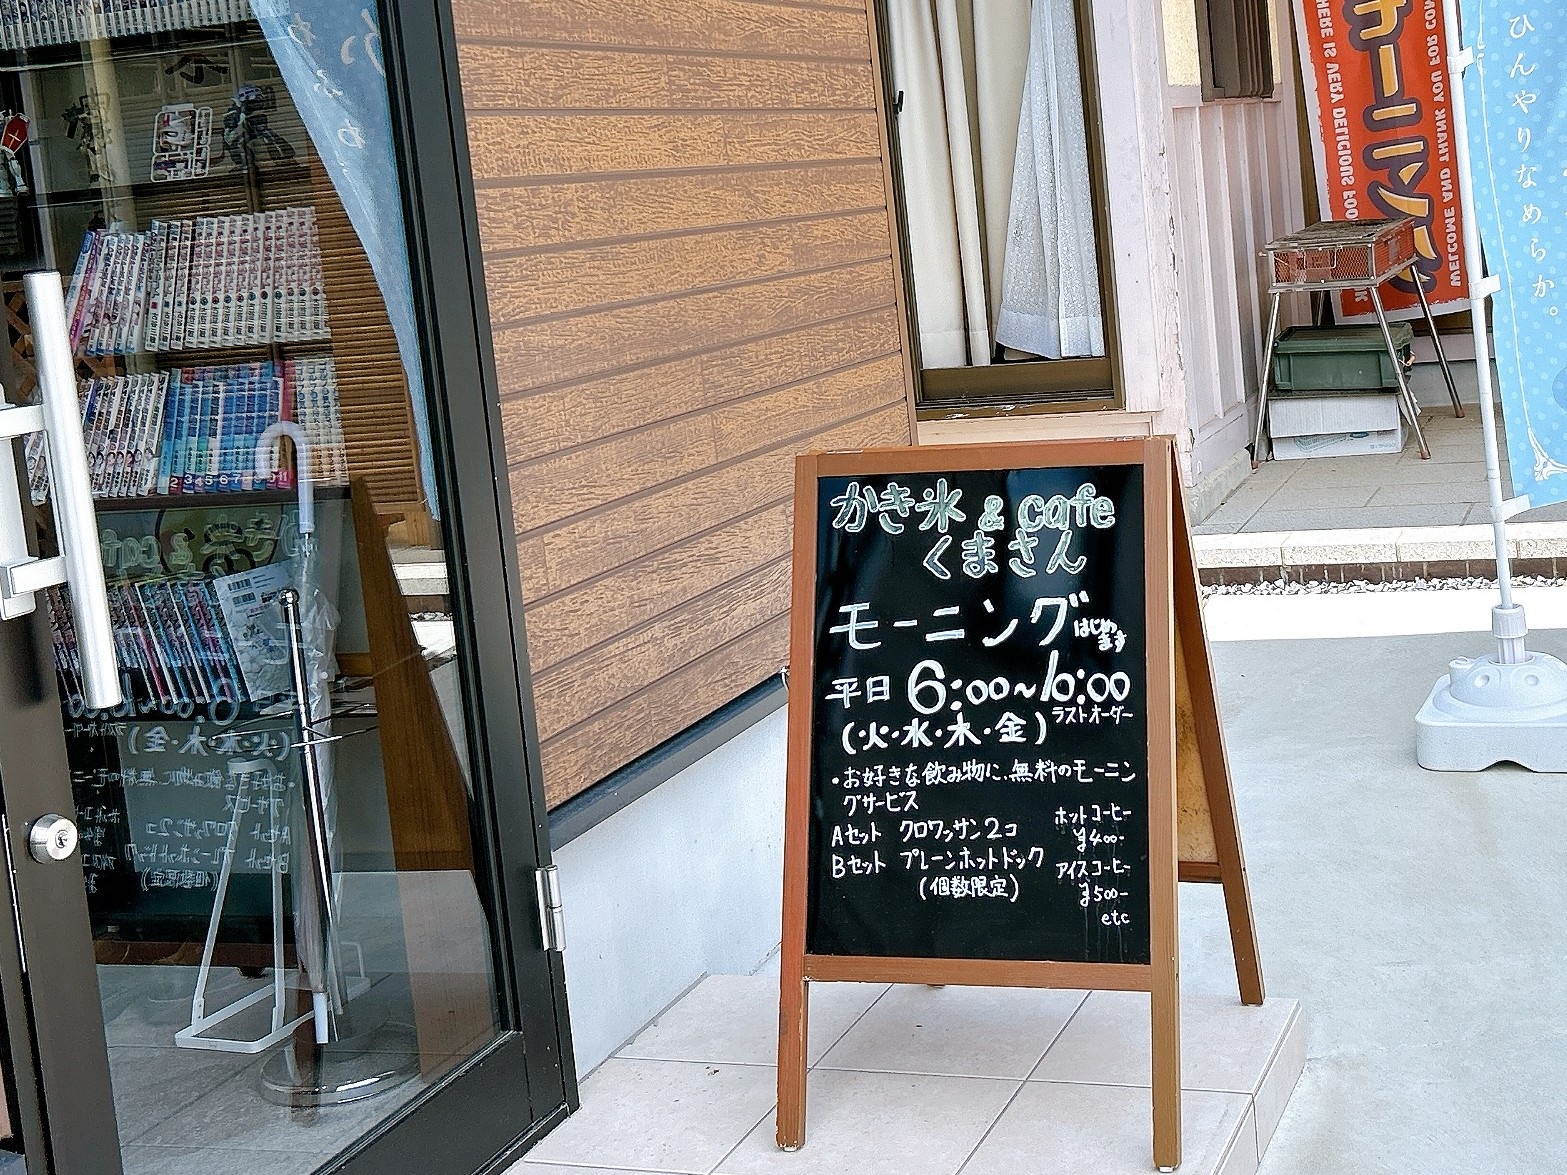 かき氷 & cafe
くまさん
モーニング はじめます
平日 6:00~10:00
ラストオーダー
(火・水・木・金)
・お好きな飲み物に、無料のモーニン
グサービス
Aセット クロワッサン2コ
Bセット プレーンホットドック
(個数限定)
ホットコーヒー
¥400-
アイスコーヒー
¥500-
etc
モーニング
HERE IS VERY DELICIOUS FOO
WELCOME AND THANK YOU FOR COM
ひんやりなめらか。
2 3 4 5 6 7 8